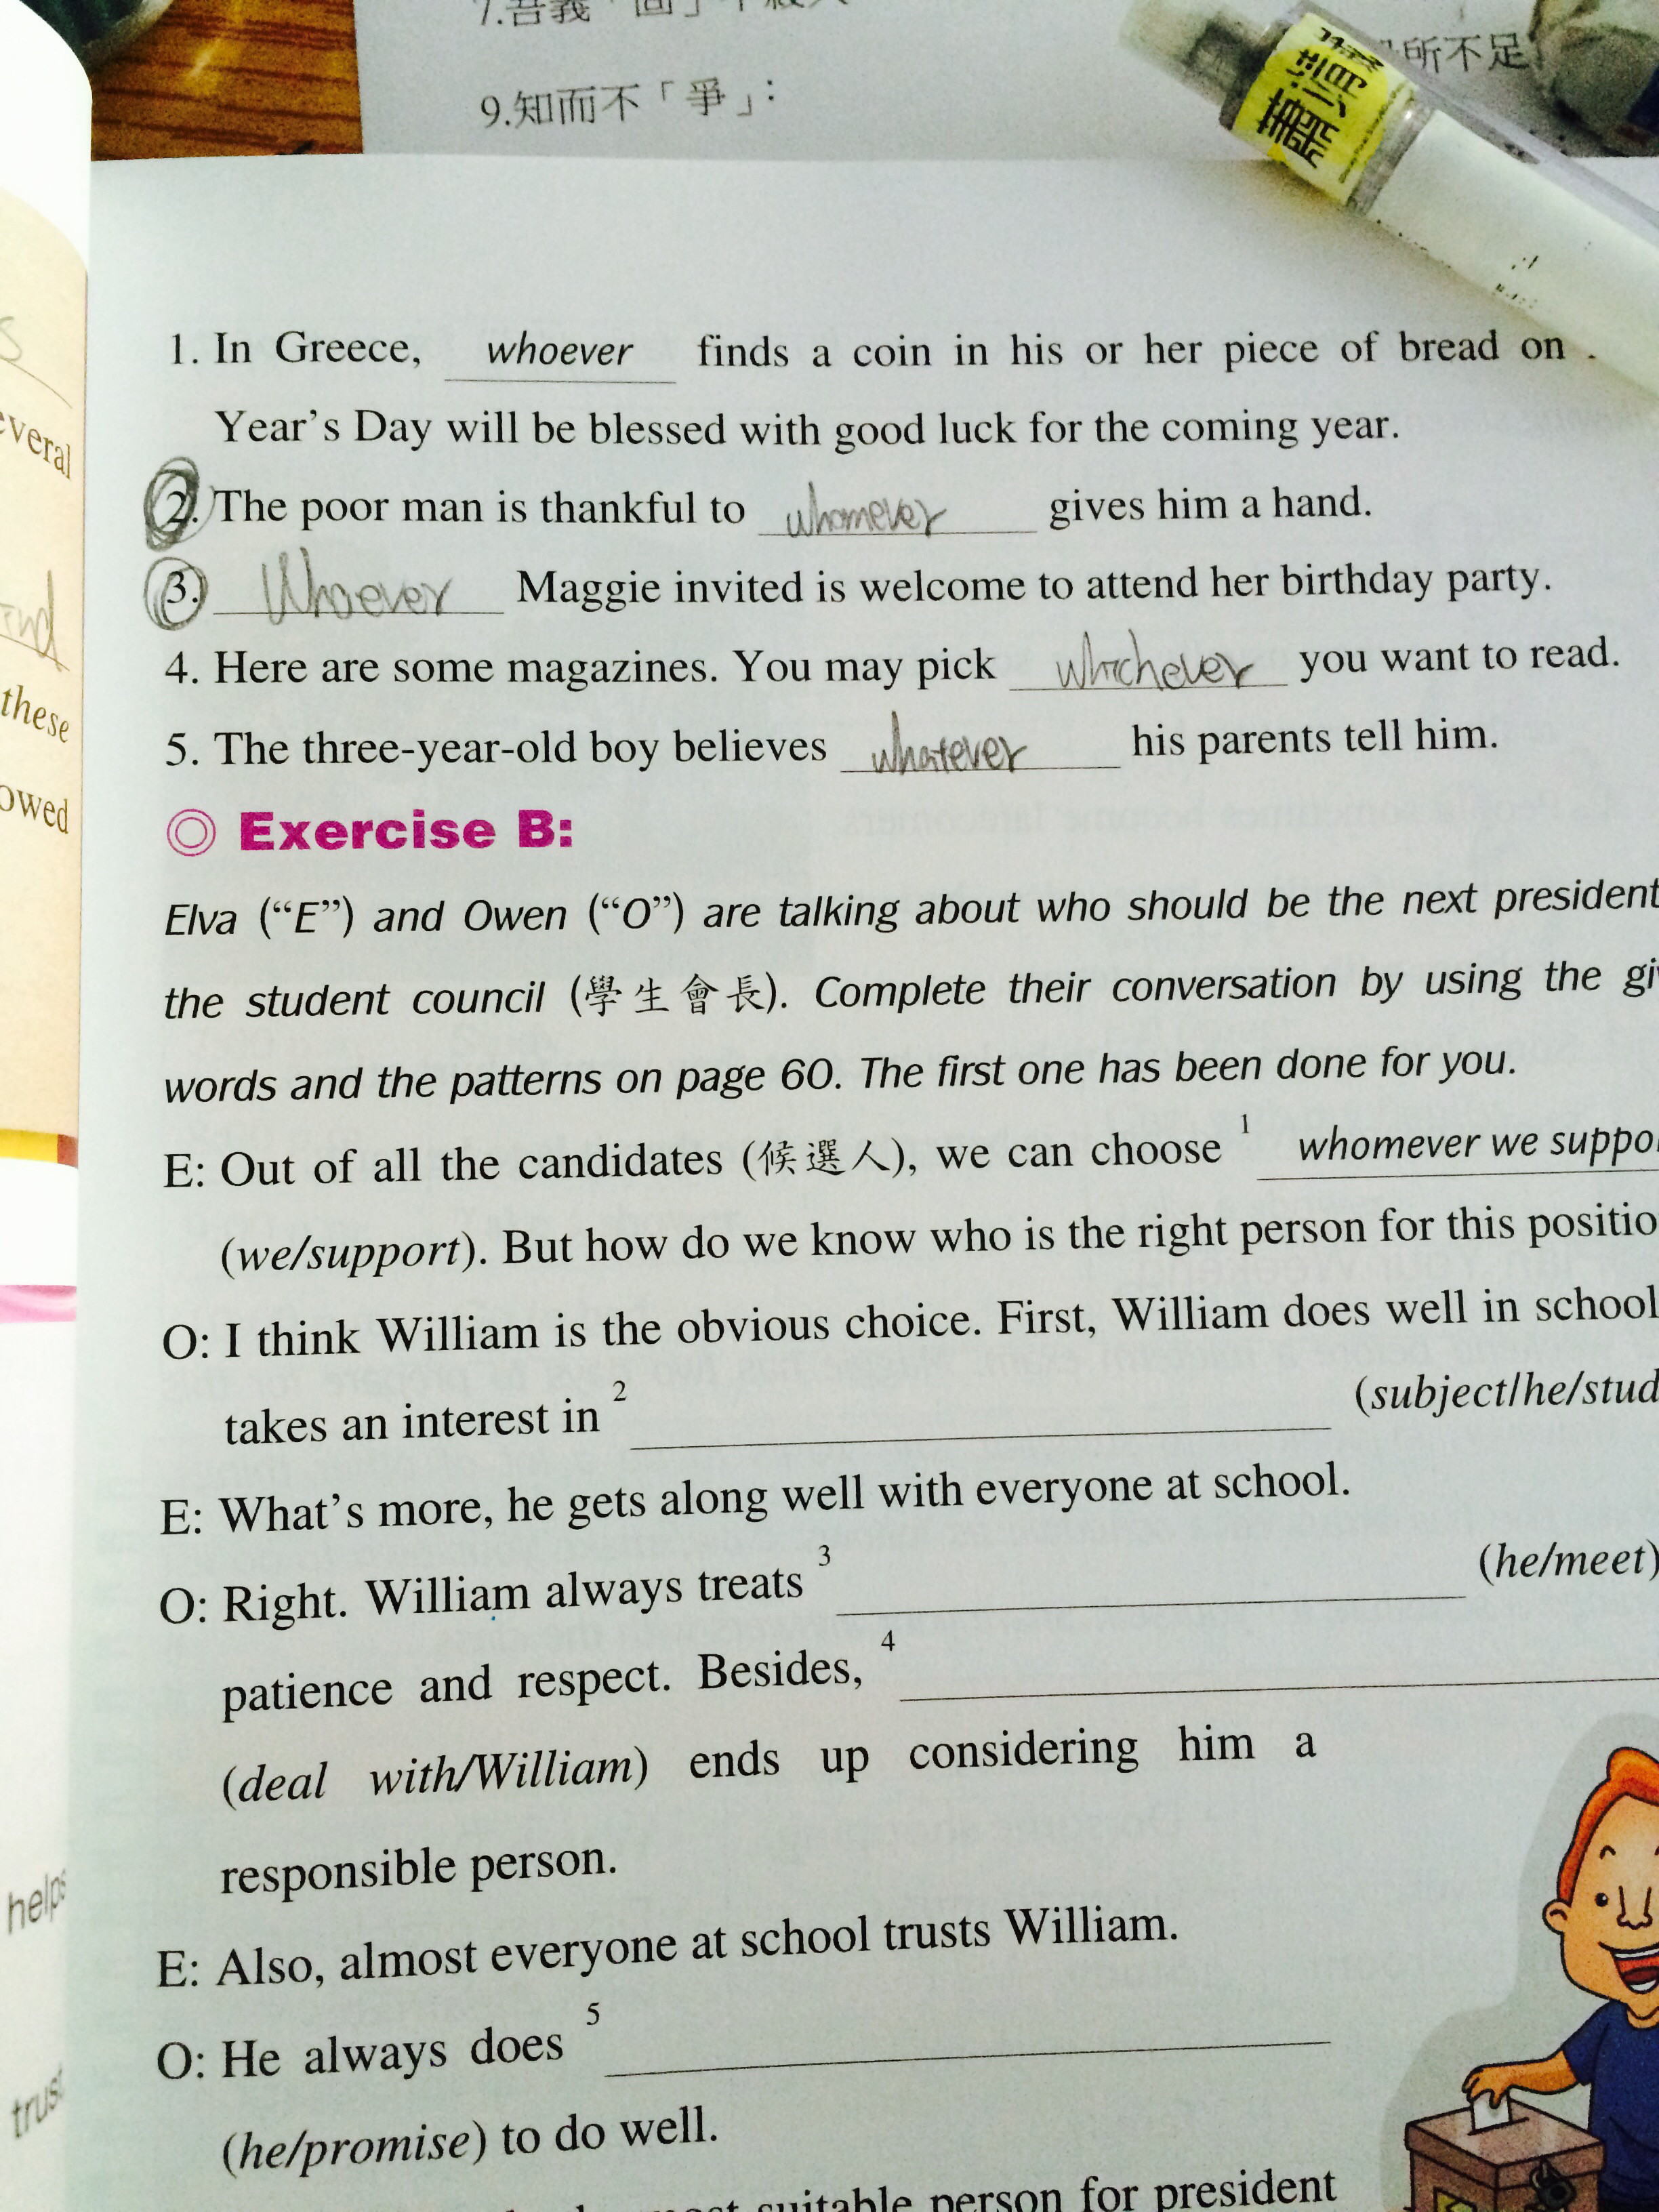 9.知而不「爭」：
所不足
1. In Greece, whoever finds a coin in his or her piece of bread on
Year's Day will be blessed with good luck for the coming year.
2. The poor man is thankful to whomever gives him a hand.
3. Whoever Maggie invited is welcome to attend her birthday party.
4. Here are some magazines. You may pick whichever you want to read.
5. The three-year-old boy believes whatever his parents tell him.
◎ Exercise B:
Elva (“E”) and Owen (“O”) are talking about who should be the next president
the student council (學生會長). Complete their conversation by using the gi
words and the patterns on page 60. The first one has been done for you.
E: Out of all the candidates (候選人), we can choose 1 whomever we suppo
(we/support). But how do we know who is the right person for this positio
O: I think William is the obvious choice. First, William does well in school
takes an interest in 2 (subject/he/stud
E: What's more, he gets along well with everyone at school.
O: Right. William always treats 3 (he/meet)
patience and respect. Besides, 4
(deal with/William) ends up considering him a
responsible person.
E: Also, almost everyone at school trusts William.
O: He always does 5
(he/promise) to do well.
suitable person for president
everal
these
owed
helps
trust